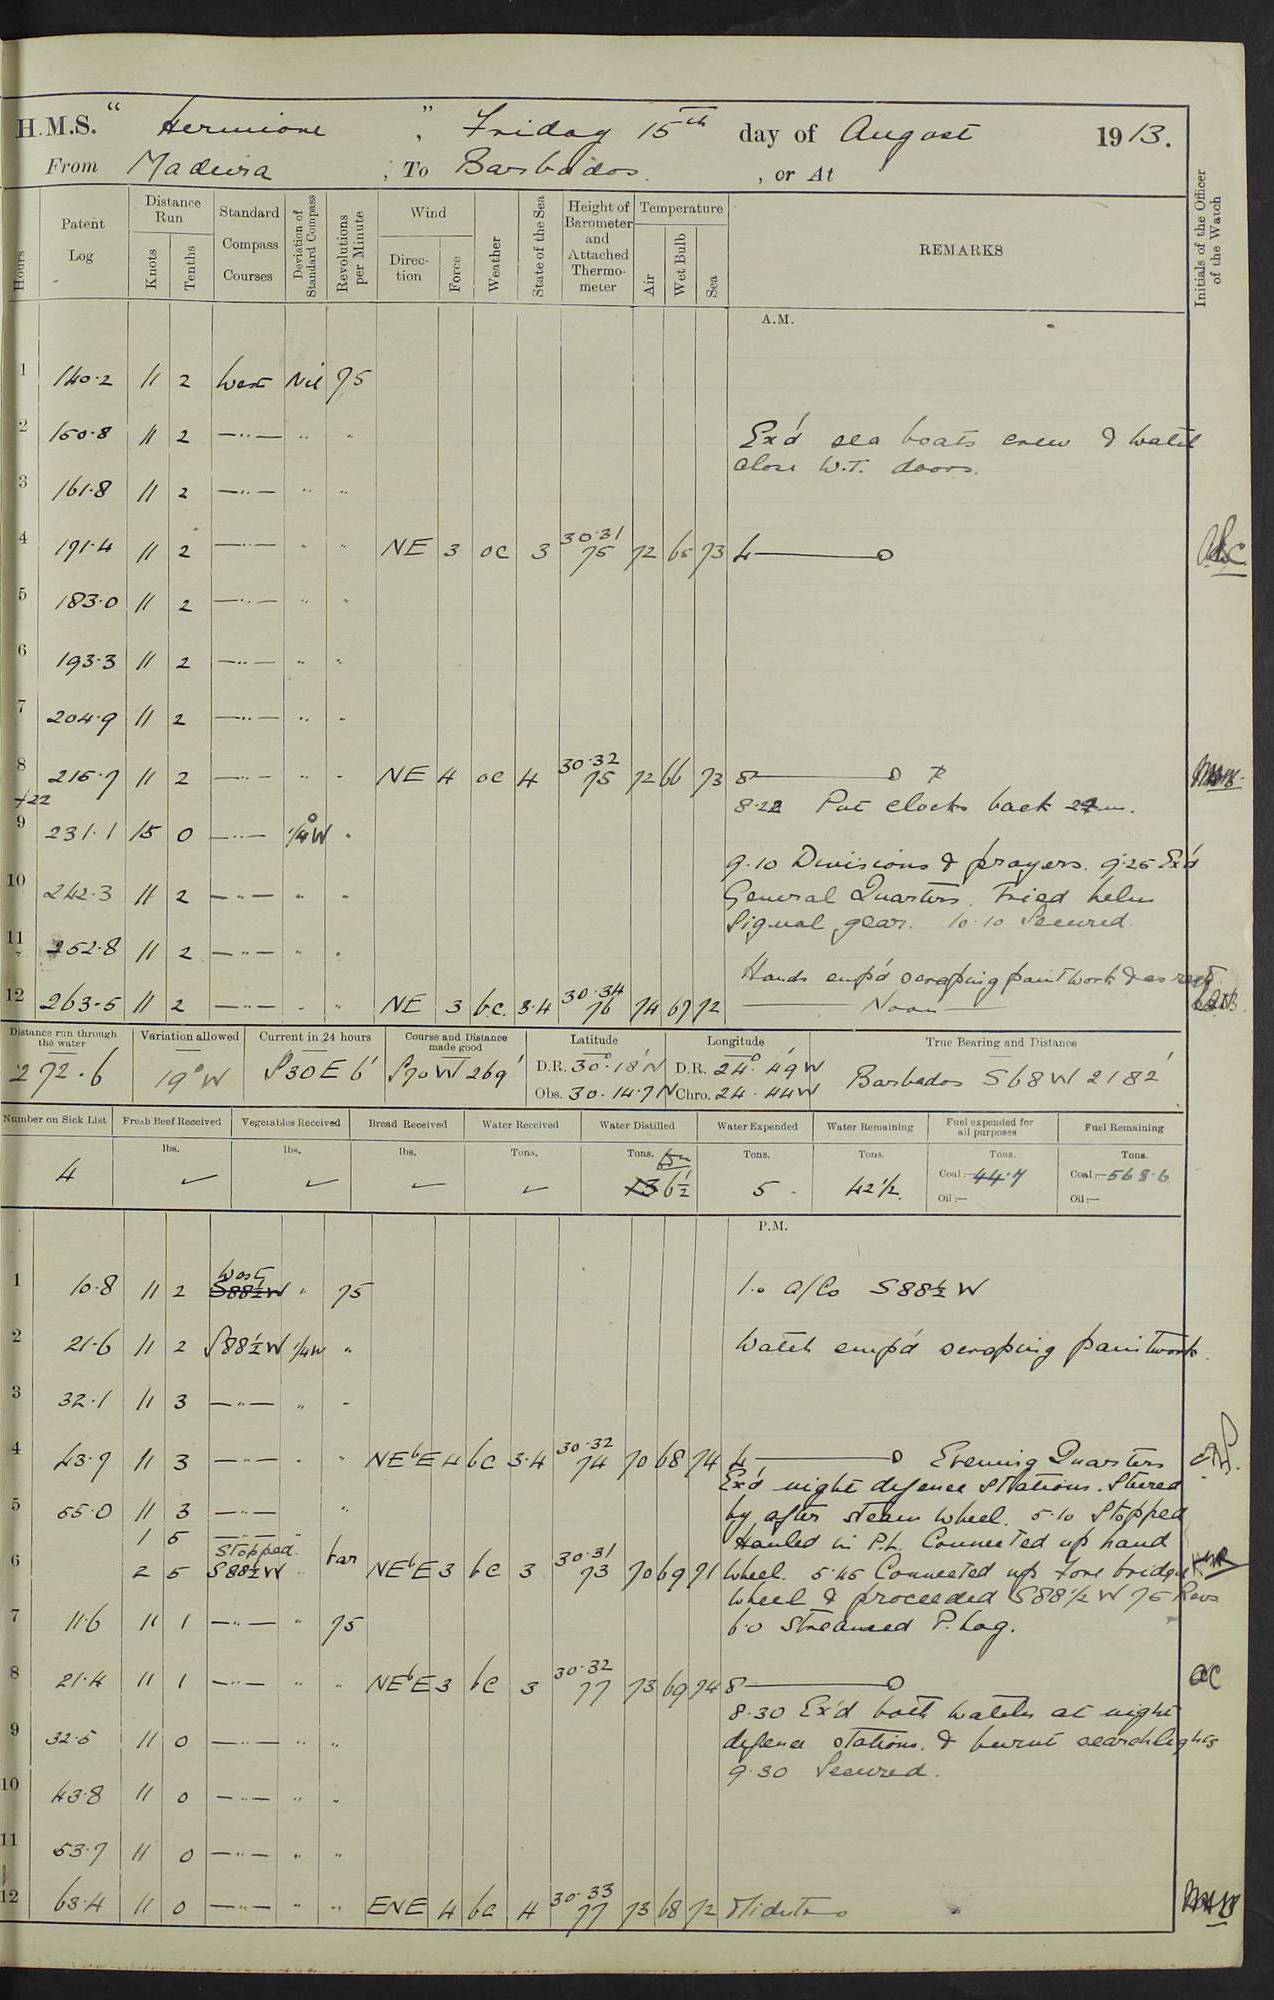 H.M.S. " Hermione ", Friday 15th day of August 1913.
From Madeira ; To Barbados. , or At
Hours
Patent Log
Distance Run
Knots
Tenths
Standard Compass Courses
Deviation of Standard Compass
Revolutions per Minute
Wind
Direction
Force
Weather
State of the Sea
Height of Barometer and Attached Thermometer
Temperature
Air
Wet Bulb
Sea
REMARKS
Initials of the Officer of the Watch
A.M.
1 140.2 11 2 West Nil 75
2 150.8 11 2 —"— " "
Ex'd sea boats crew & watch
close W.T. doors.
3 161.8 11 2 —"— " "
4 171.4 11 2 —"— " " NE 3 oc 3 30.31 75 72 65 73 4———o
5 183.0 11 2 —"— " "
6 193.3 11 2 —"— " "
7 204.9 11 2 —"— " "
8 215.7 11 2 —"— " " NE 4 oc 4 30.32 75 72 66 73 8———o
+22
8.22 Put clocks back 22m.
9 231.1 15 0 —"— 1/4°W "
9.10 Divisions & prayers. 9.25 Ex'd
10 242.3 11 2 —"— " "
General Quarters. Tried helm
signal gear. 10.10 Secured.
11 252.8 11 2 —"— " "
Hands emp'd scraping paintwork & as req
12 263.5 11 2 —"— " " NE 3 bc. 3.4 30.34 76 74 67 72 —— Noon ——
Distance run through the water
Variation allowed
Current in 24 hours
Course and Distance made good
Latitude
Longitude
True Bearing and Distance
272.6 19°W S30E 6' S70W 269'
D.R. 30°.18'N D.R. 24°.49'W
Obs. 30.14.7N Chro. 24.44W
Barbados S68W 2182'
Number on Sick List
Fresh Beef Received
Vegetables Received
Bread Received
Water Received
Water Distilled
Water Expended
Water Remaining
Fuel expended for all purposes
Fuel Remaining
lbs. lbs. lbs. Tons. Tons. Tons. Tons. Tons. Tons.
4 ✓ ✓ ✓ ✓ 13 6½ 5 42½ Coal:—44.7 Coal:—568.6
Oil:— Oil:—
P.M.
1 10.8 11 2 West S88½W " 75 1.0 a/Co S88½W
2 21.6 11 2 S88½W 1/4W " Watch emp'd scraping paintwork.
3 32.1 11 3 —"— " "
4 43.7 11 3 —"— " " NEbE 4 bc 3.4 30.32 74 70 68 74 4———o Evening Quarters
Ex'd night defence stations. Steered
5 55.0 11 3 —"— "
by after steam wheel. 5.10 Stopped
1 5 —"— "
Hauled in P.L. Connected up hand
Stopped.
6 2 5 S88½W " var NEbE 3 bc 3 30.31 73 70 69 71 wheel. 5.45 Connected up fore bridge
wheel & proceeded S88½W 75 Revs
7 11.6 11 1 —"— " 75 6.0 Streamed P. Log.
8 21.4 11 1 —"— " " NEbE 3 bc 3 30.32 77 73 69 74 8———o
8.30 Ex'd both watches at night
9 32.5 11 0 —"— " " defence stations. & burnt searchlights
9.30 Secured.
10 43.8 11 0 —"— " "
11 53.7 11 0 —"— " "
12 63.4 11 0 —"— " " ENE 4 bc 4 30.33 77 73 68 72